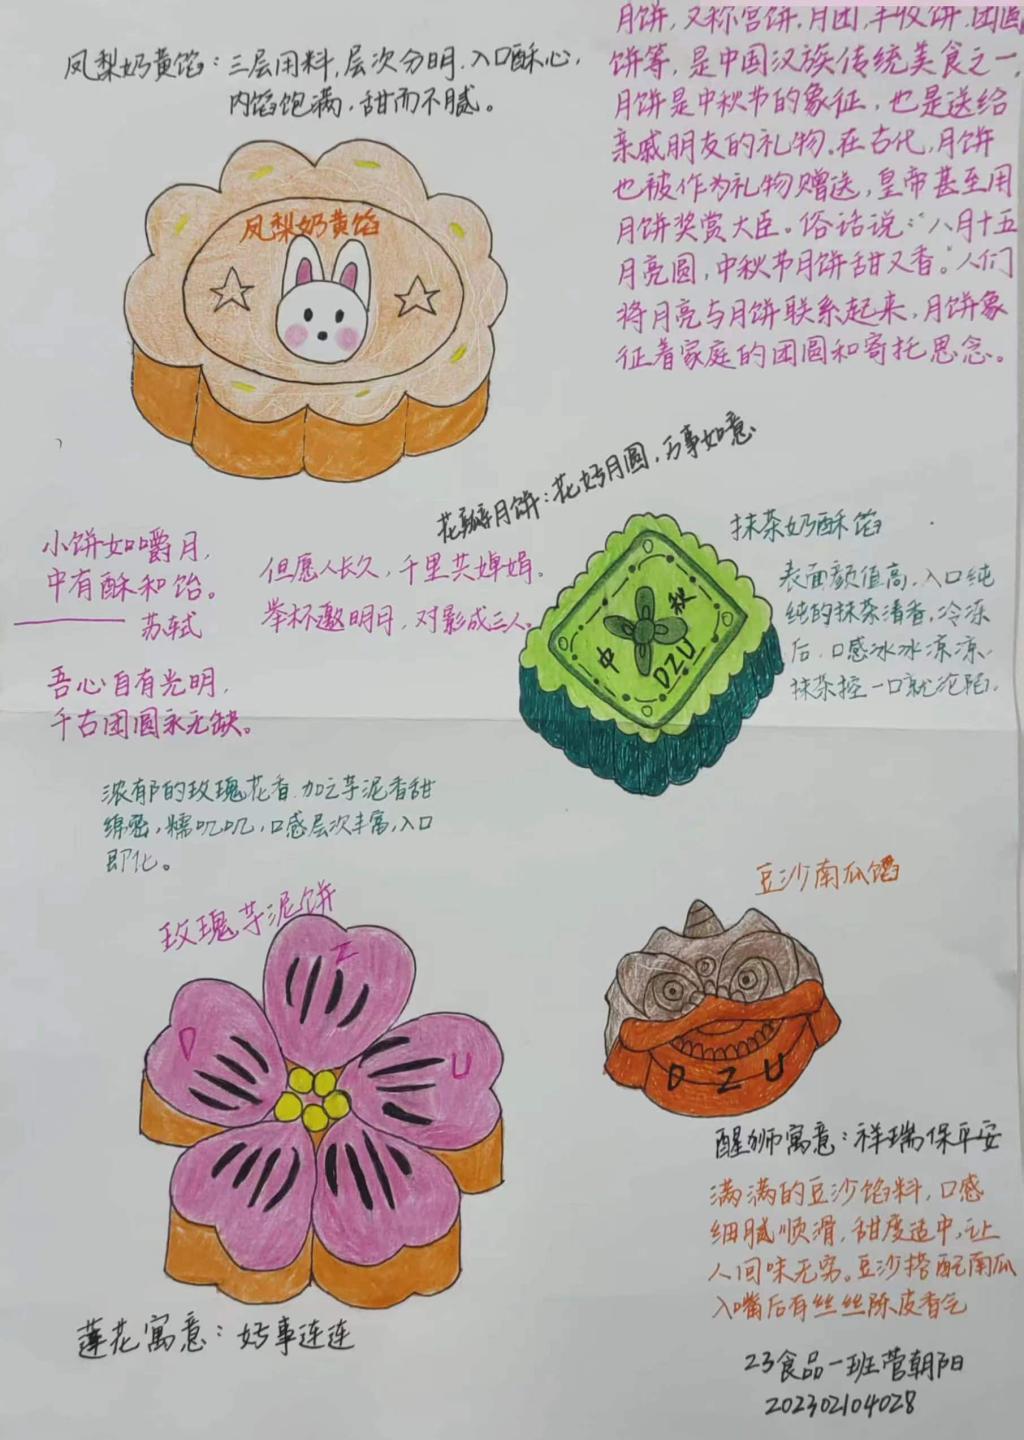 凤梨奶黄馅：三层用料，层次分明，入口酥心，
内馅饱满，甜而不腻。
月饼，又称宫饼、月团、丰收饼、团圆
饼等，是中国汉族传统美食之一，
月饼是中秋节的象征，也是送给
亲戚朋友的礼物。在古代，月饼
也被作为礼物赠送，皇帝甚至用
月饼奖赏大臣。俗话说：“八月十五
月亮圆，中秋节月饼甜又香。”人们
将月亮与月饼联系起来，月饼象
征着家庭的团圆和寄托思念。
凤梨奶黄馅
花瓣月饼：花好月圆，万事如意
小饼如嚼月，
中有酥和饴。
——苏轼
但愿人长久，千里共婵娟。
举杯邀明月，对影成三人。
吾心自有光明，
千古团圆永无缺。
抹茶奶酥馅
表面颜值高，入口纯
纯的抹茶清香，冷冻
后，口感冰冰凉凉，
抹茶控一口就沦陷。
中
秋
DZU
浓郁的玫瑰花香，加之芋泥香甜
绵密，糯叽叽，口感层次丰富，入口
即化。
玫瑰芋泥饼
D
Z
U
莲花寓意：好事连连
豆沙南瓜馅
D Z U
醒狮寓意：祥瑞保平安
满满的豆沙馅料，口感
细腻顺滑，甜度适中，让
人回味无穷。豆沙搭配南瓜
入嘴后有丝丝陈皮香气
23食品一班菅朝阳
202302104028